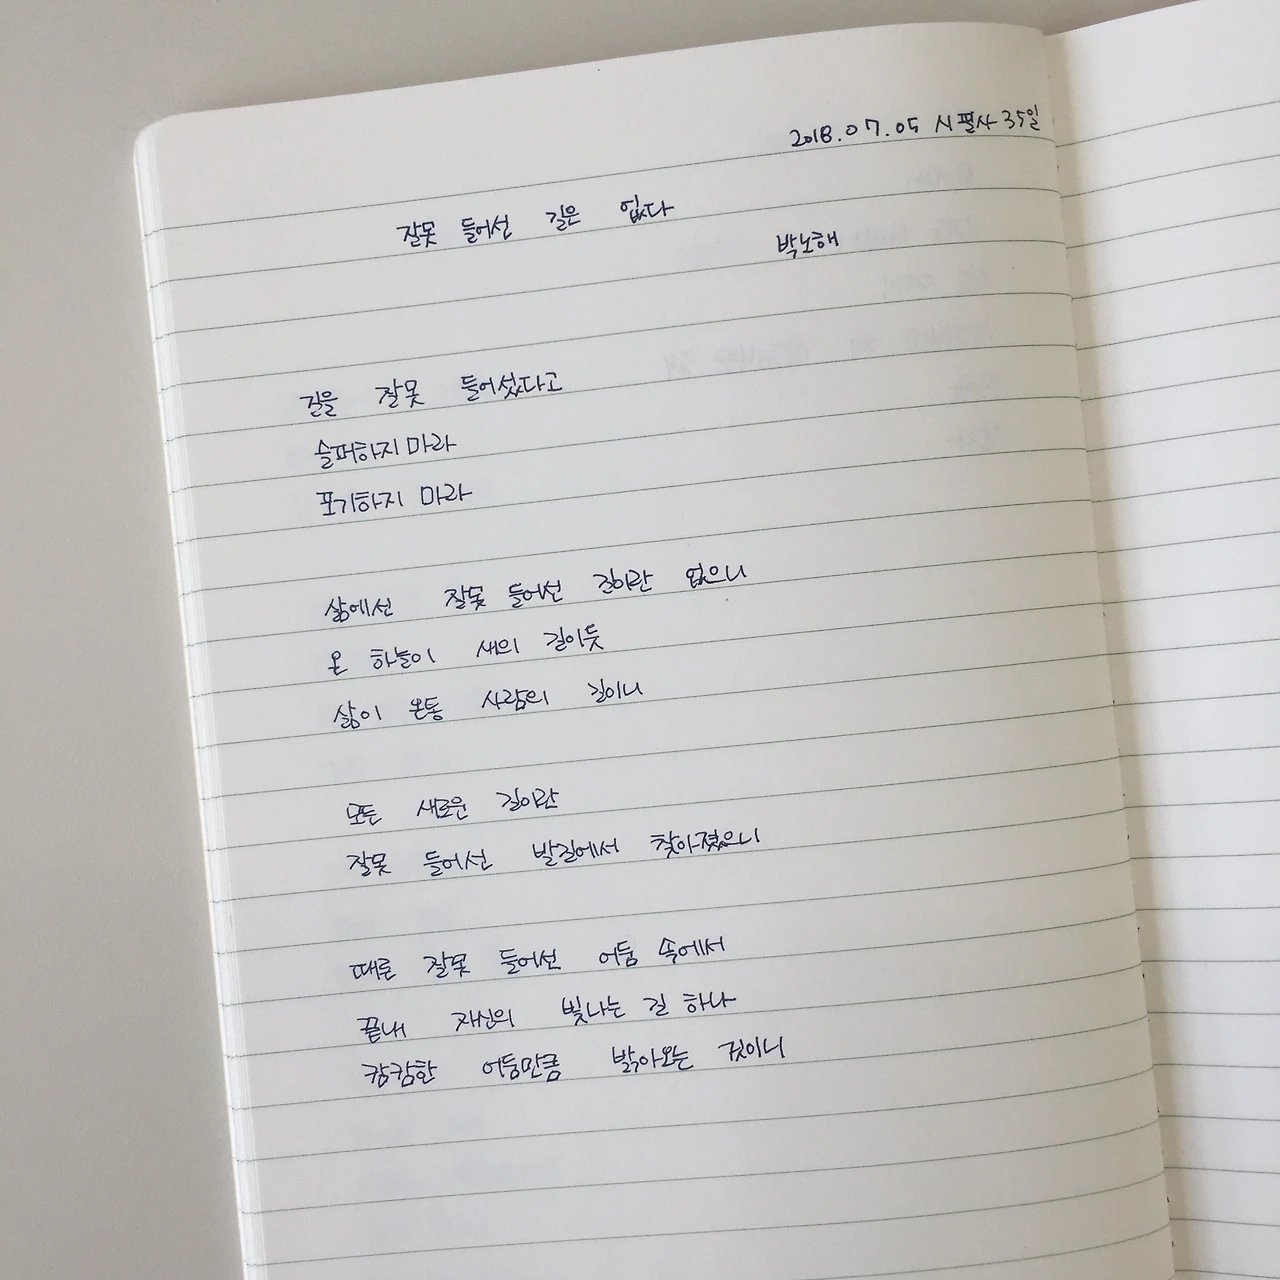 2018.07.05 시필사 35일
잘못 들어선 길은 없다
박노해
길을 잘못 들어섰다고
슬퍼하지 마라
포기하지 마라
삶에선 잘못 들어선 길이란 없으니
온 하늘이 새의 길이듯
삶이 온통 사람의 길이니
모든 새로운 길이란
잘못 들어선 발길에서 찾아졌으니
때론 잘못 들어선 어둠 속에서
끝내 자신의 빛나는 길 하나
캄캄한 어둠만큼 밝아오는 것이니